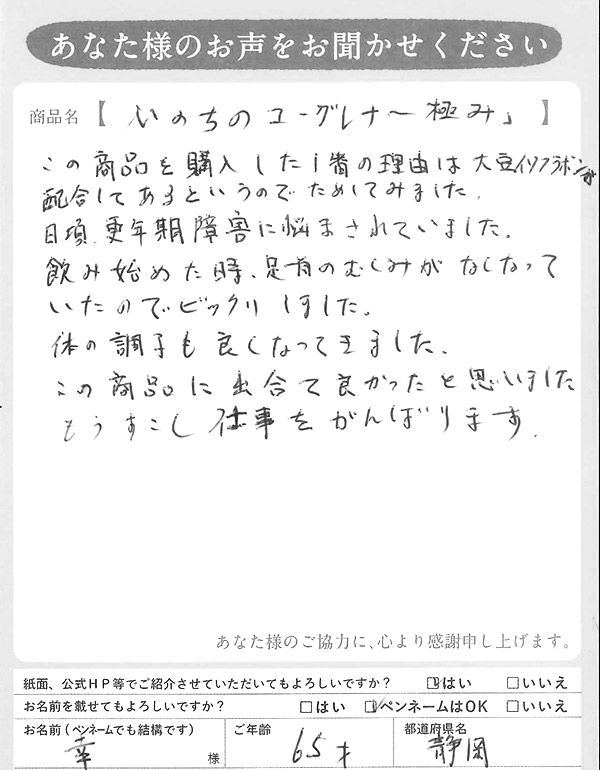 あなた様のお声をお聞かせください
商品名【いのちのユーグレナ～極み」】
この商品を購入した1番の理由は大豆イソフラボンが
配合してあるというのでためしてみました。
日頃、更年期障害に悩まされていました。
飲み始めた時、足首のむくみがなくなって
いたのでビックリしました。
体の調子も良くなってきました。
この商品に出合て良かったと思いました
もうすこし仕事をがんばります。
あなた様のご協力に、心より感謝申し上げます。
紙面、公式HP等でご紹介させていただいてもよろしいですか? □はい □いいえ
お名前を載せてもよろしいですか? □はい □ペンネームはOK □いいえ
お名前(ペンネームでも結構です) ご年齢 都道府県名
幸 様 65才 静岡